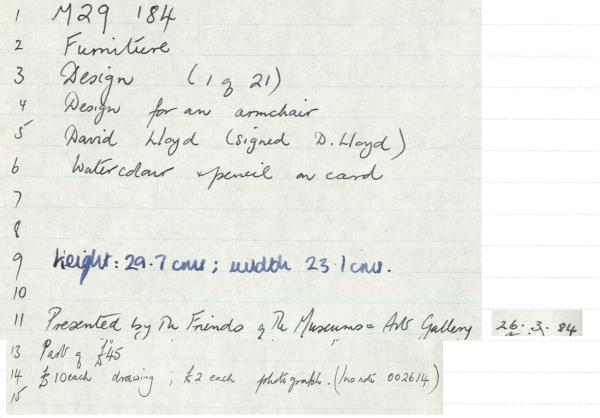 1 M29 184
2 Furniture
3 Design (1 of 21)
4 Design for an armchair
5 David Lloyd (signed D. Lloyd)
6 Watercolour + pencil on card
7
8
9 height: 29.7 cms; width 23.1 cms.
10
11 Presented by The Friends of The Museums & Arts Gallery 26.3.84
13 Part of £45
14 £10 each drawing; £2 each photograph. (002614)
15